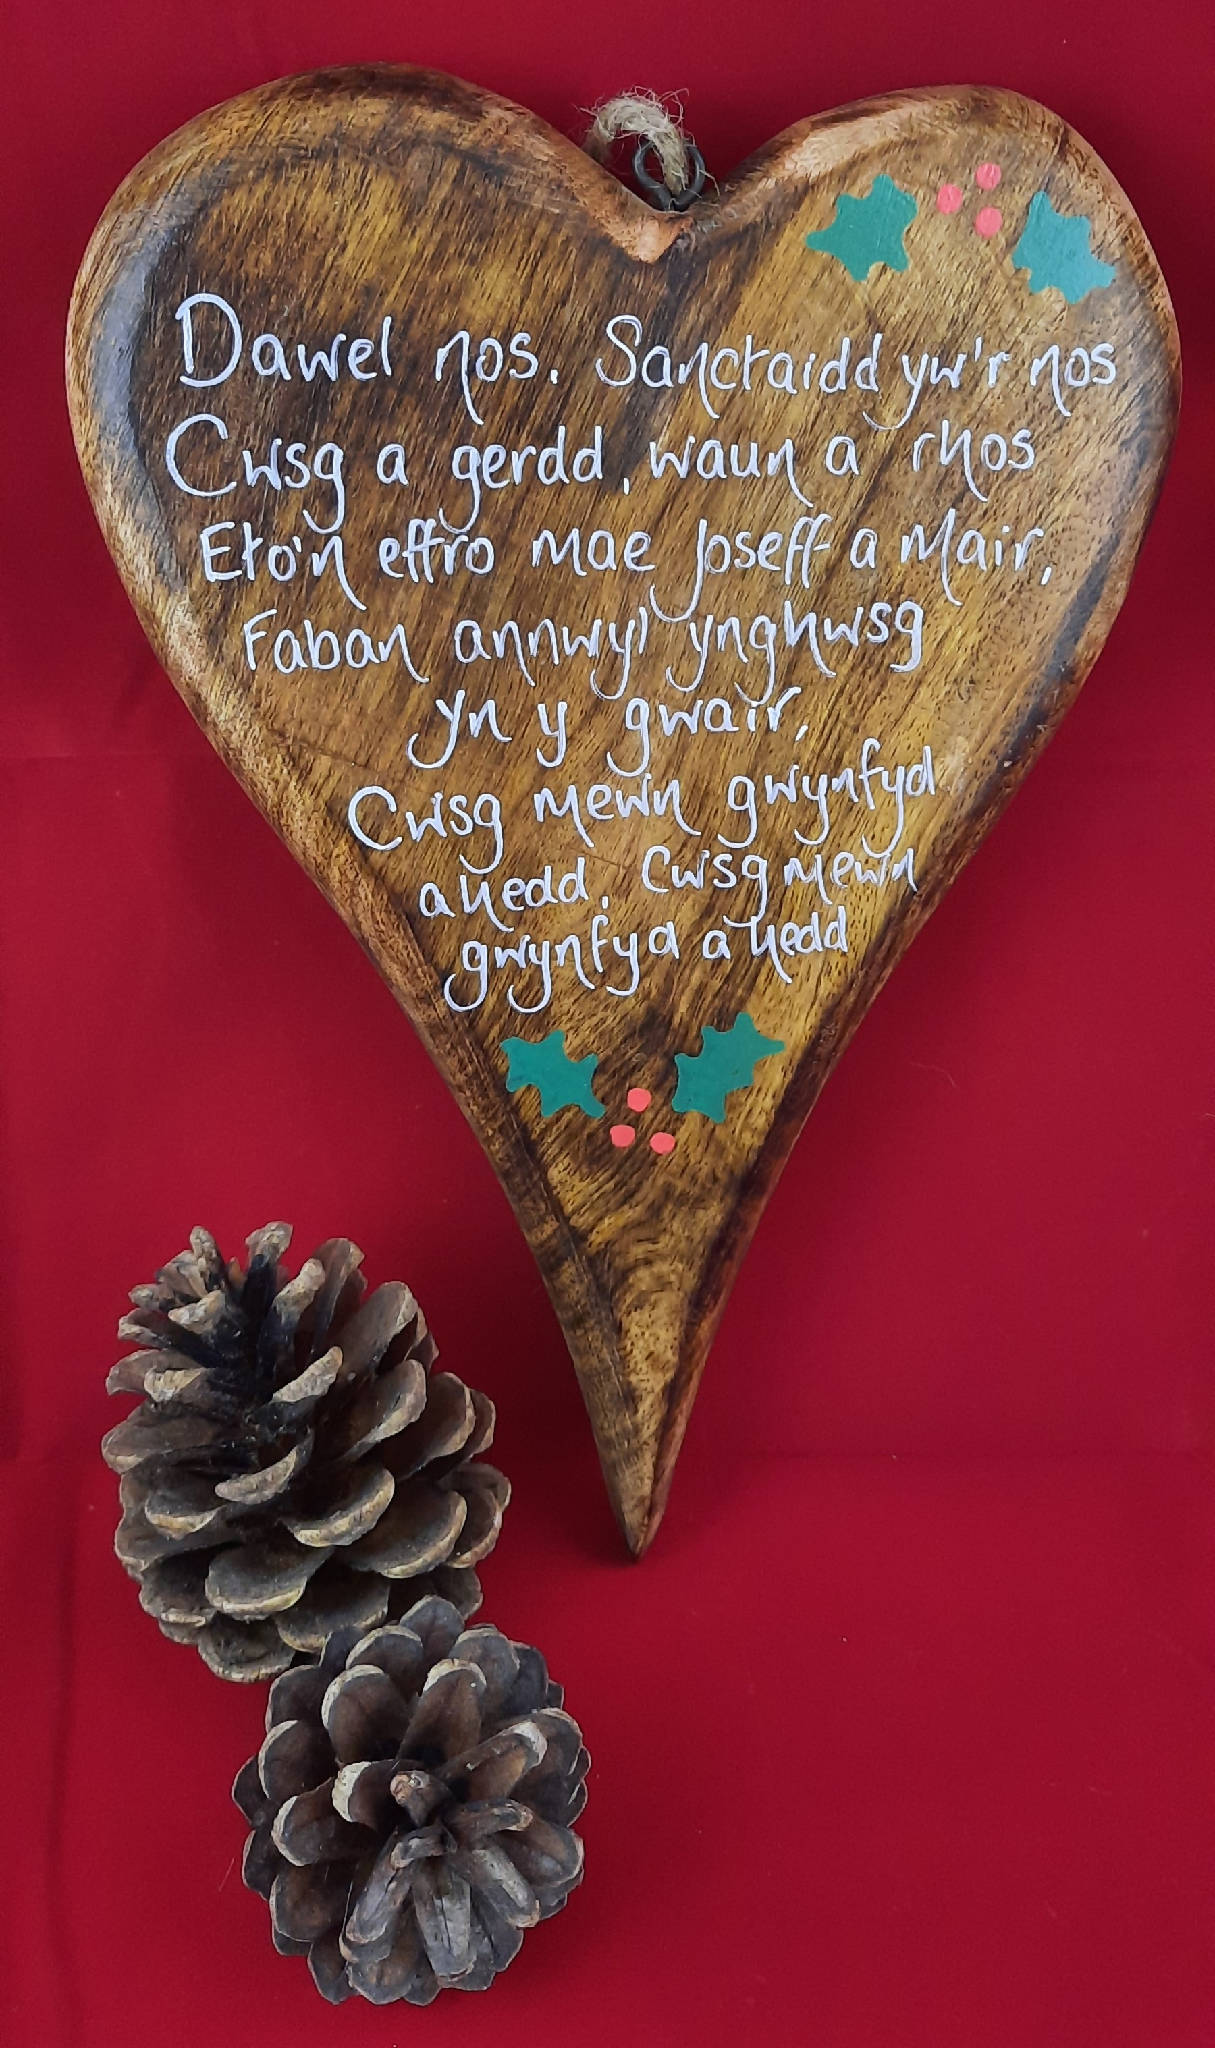 Dawel nos. Sanctaidd yw'r nos
Cwsg a gerdd, waun a rhos
Eto'n effro mae Joseff a Mair,
Faban annwyl ynghwsg
yn y gwair,
Cwsg mewn gwynfyd
a hedd, Cwsg mewn
gwynfyd a hedd